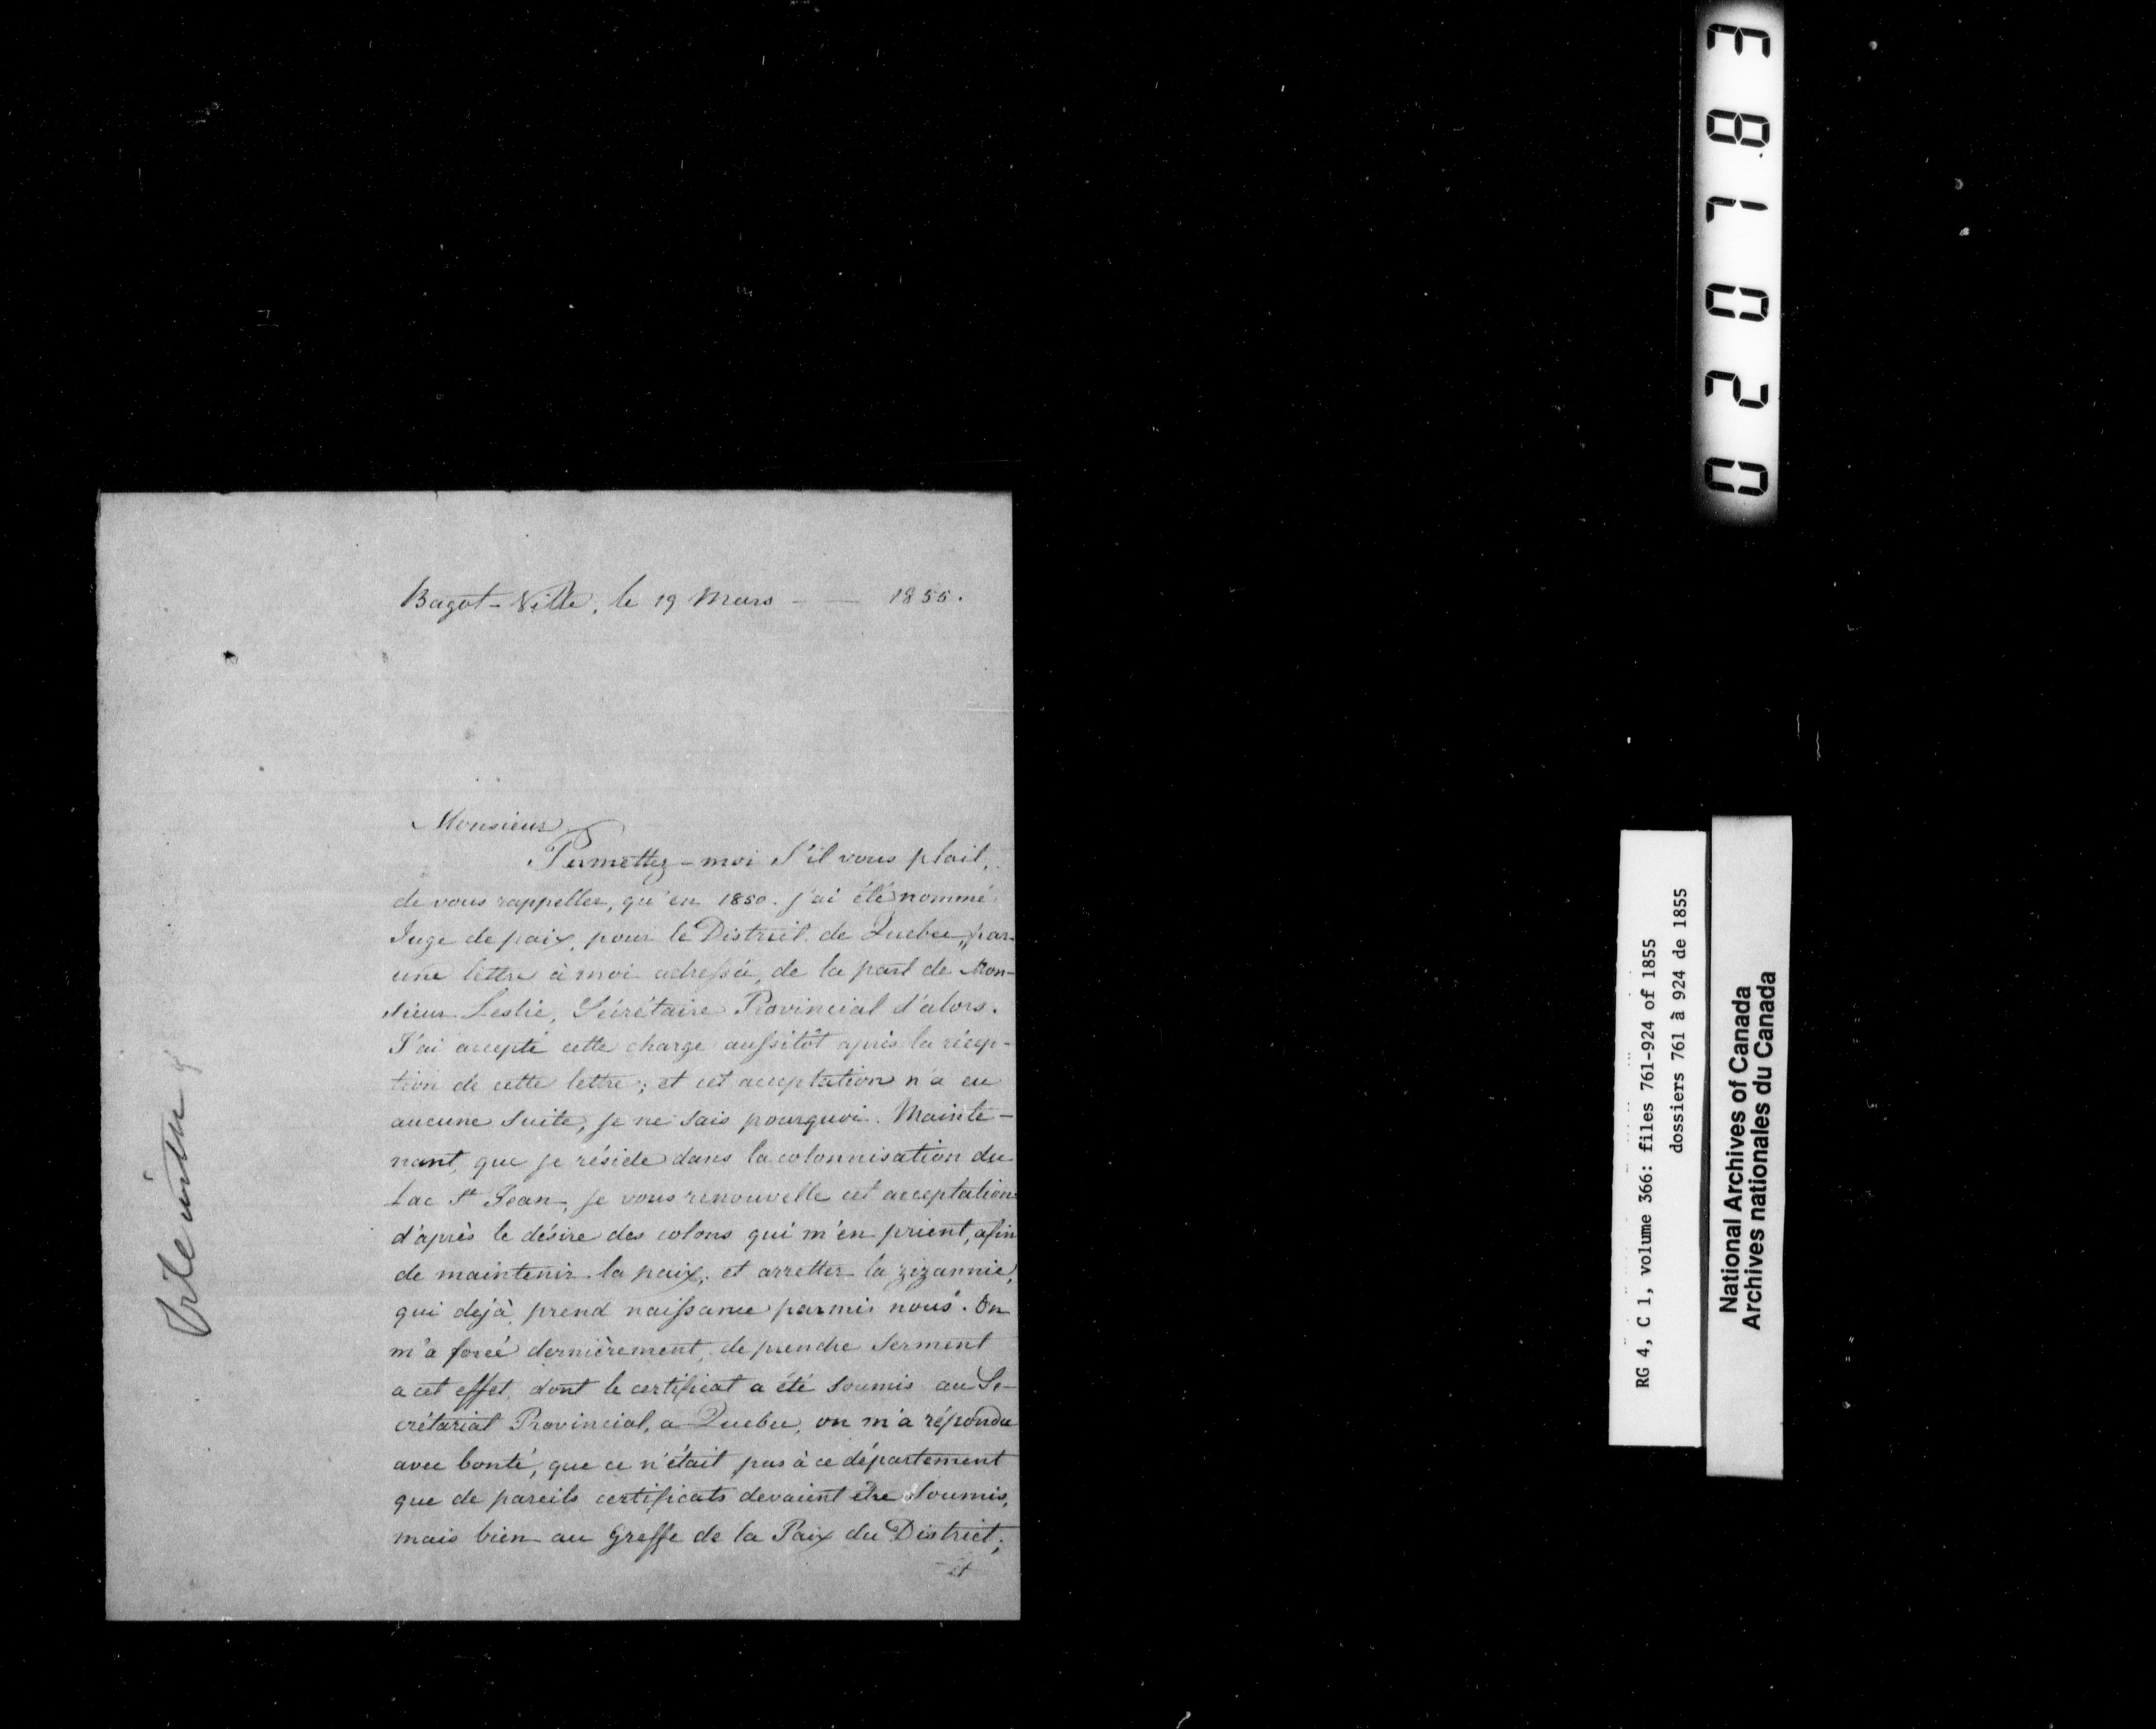 Bagot-Ville, le 19 Mars — — 1855.
Monsieur,
Permettez-moi s'il vous plait,
de vous rappeller, qu'en 1850. j'ai été nommé
Juge de paix, pour le District de Quebec, par
une lettre à moi adressée, de la part de Mon-
sieur Leslie, Sécrétaire Provincial d'alors.
J'ai accepté cette charge aussitôt après la récep-
tion de cette lettre; et cet acceptation n'a eu
aucune suite, je ne sais pourquoi. Mainte-
nant, que je réside dans la colonnisation du
Lac St Jean, je vous renouvelle cet acceptation
d'après le désire des colons qui m'en prient, afin
de maintenir la paix, et arretter la zizannie,
qui dejà, prend naissance parmis nous. On
m'a forcé dernièrement, de prendre serment
a cet effet, dont le certificat a été soumis au Se-
crétariat Provincial, a Quebec, on m'a répondu
avec bonté, que ce n'était pas à ce département
que de pareils certificats devaient etre soumis,
mais bien au Greffe de la Paix du District;
et
020183
RG 4, C 1, volume 366: files 761-924 of 1855
dossiers 761 à 924 de 1855
National Archives of Canada
Archives nationales du Canada